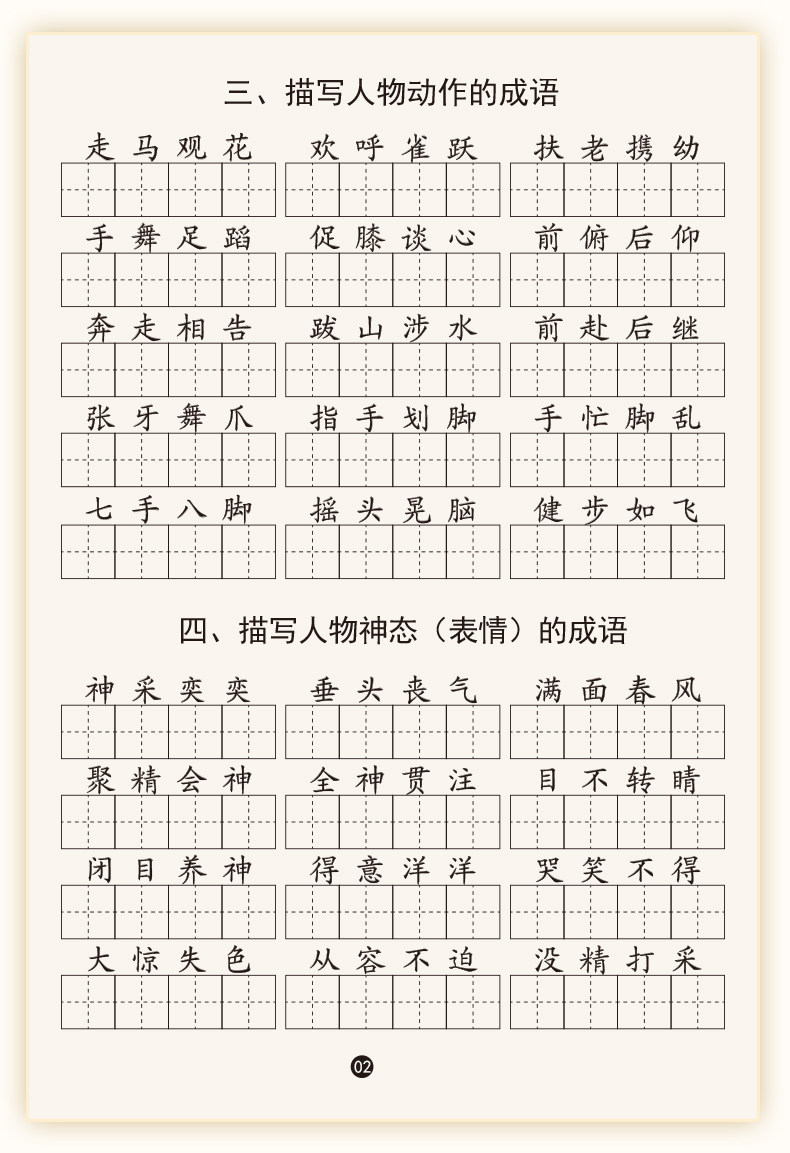 三、描写人物动作的成语
走马观花 欢呼雀跃 扶老携幼
手舞足蹈 促膝谈心 前俯后仰
奔走相告 跋山涉水 前赴后继
张牙舞爪 指手划脚 手忙脚乱
七手八脚 摇头晃脑 健步如飞
四、描写人物神态（表情）的成语
神采奕奕 垂头丧气 满面春风
聚精会神 全神贯注 目不转晴
闭目养神 得意洋洋 哭笑不得
大惊失色 从容不迫 没精打采
02